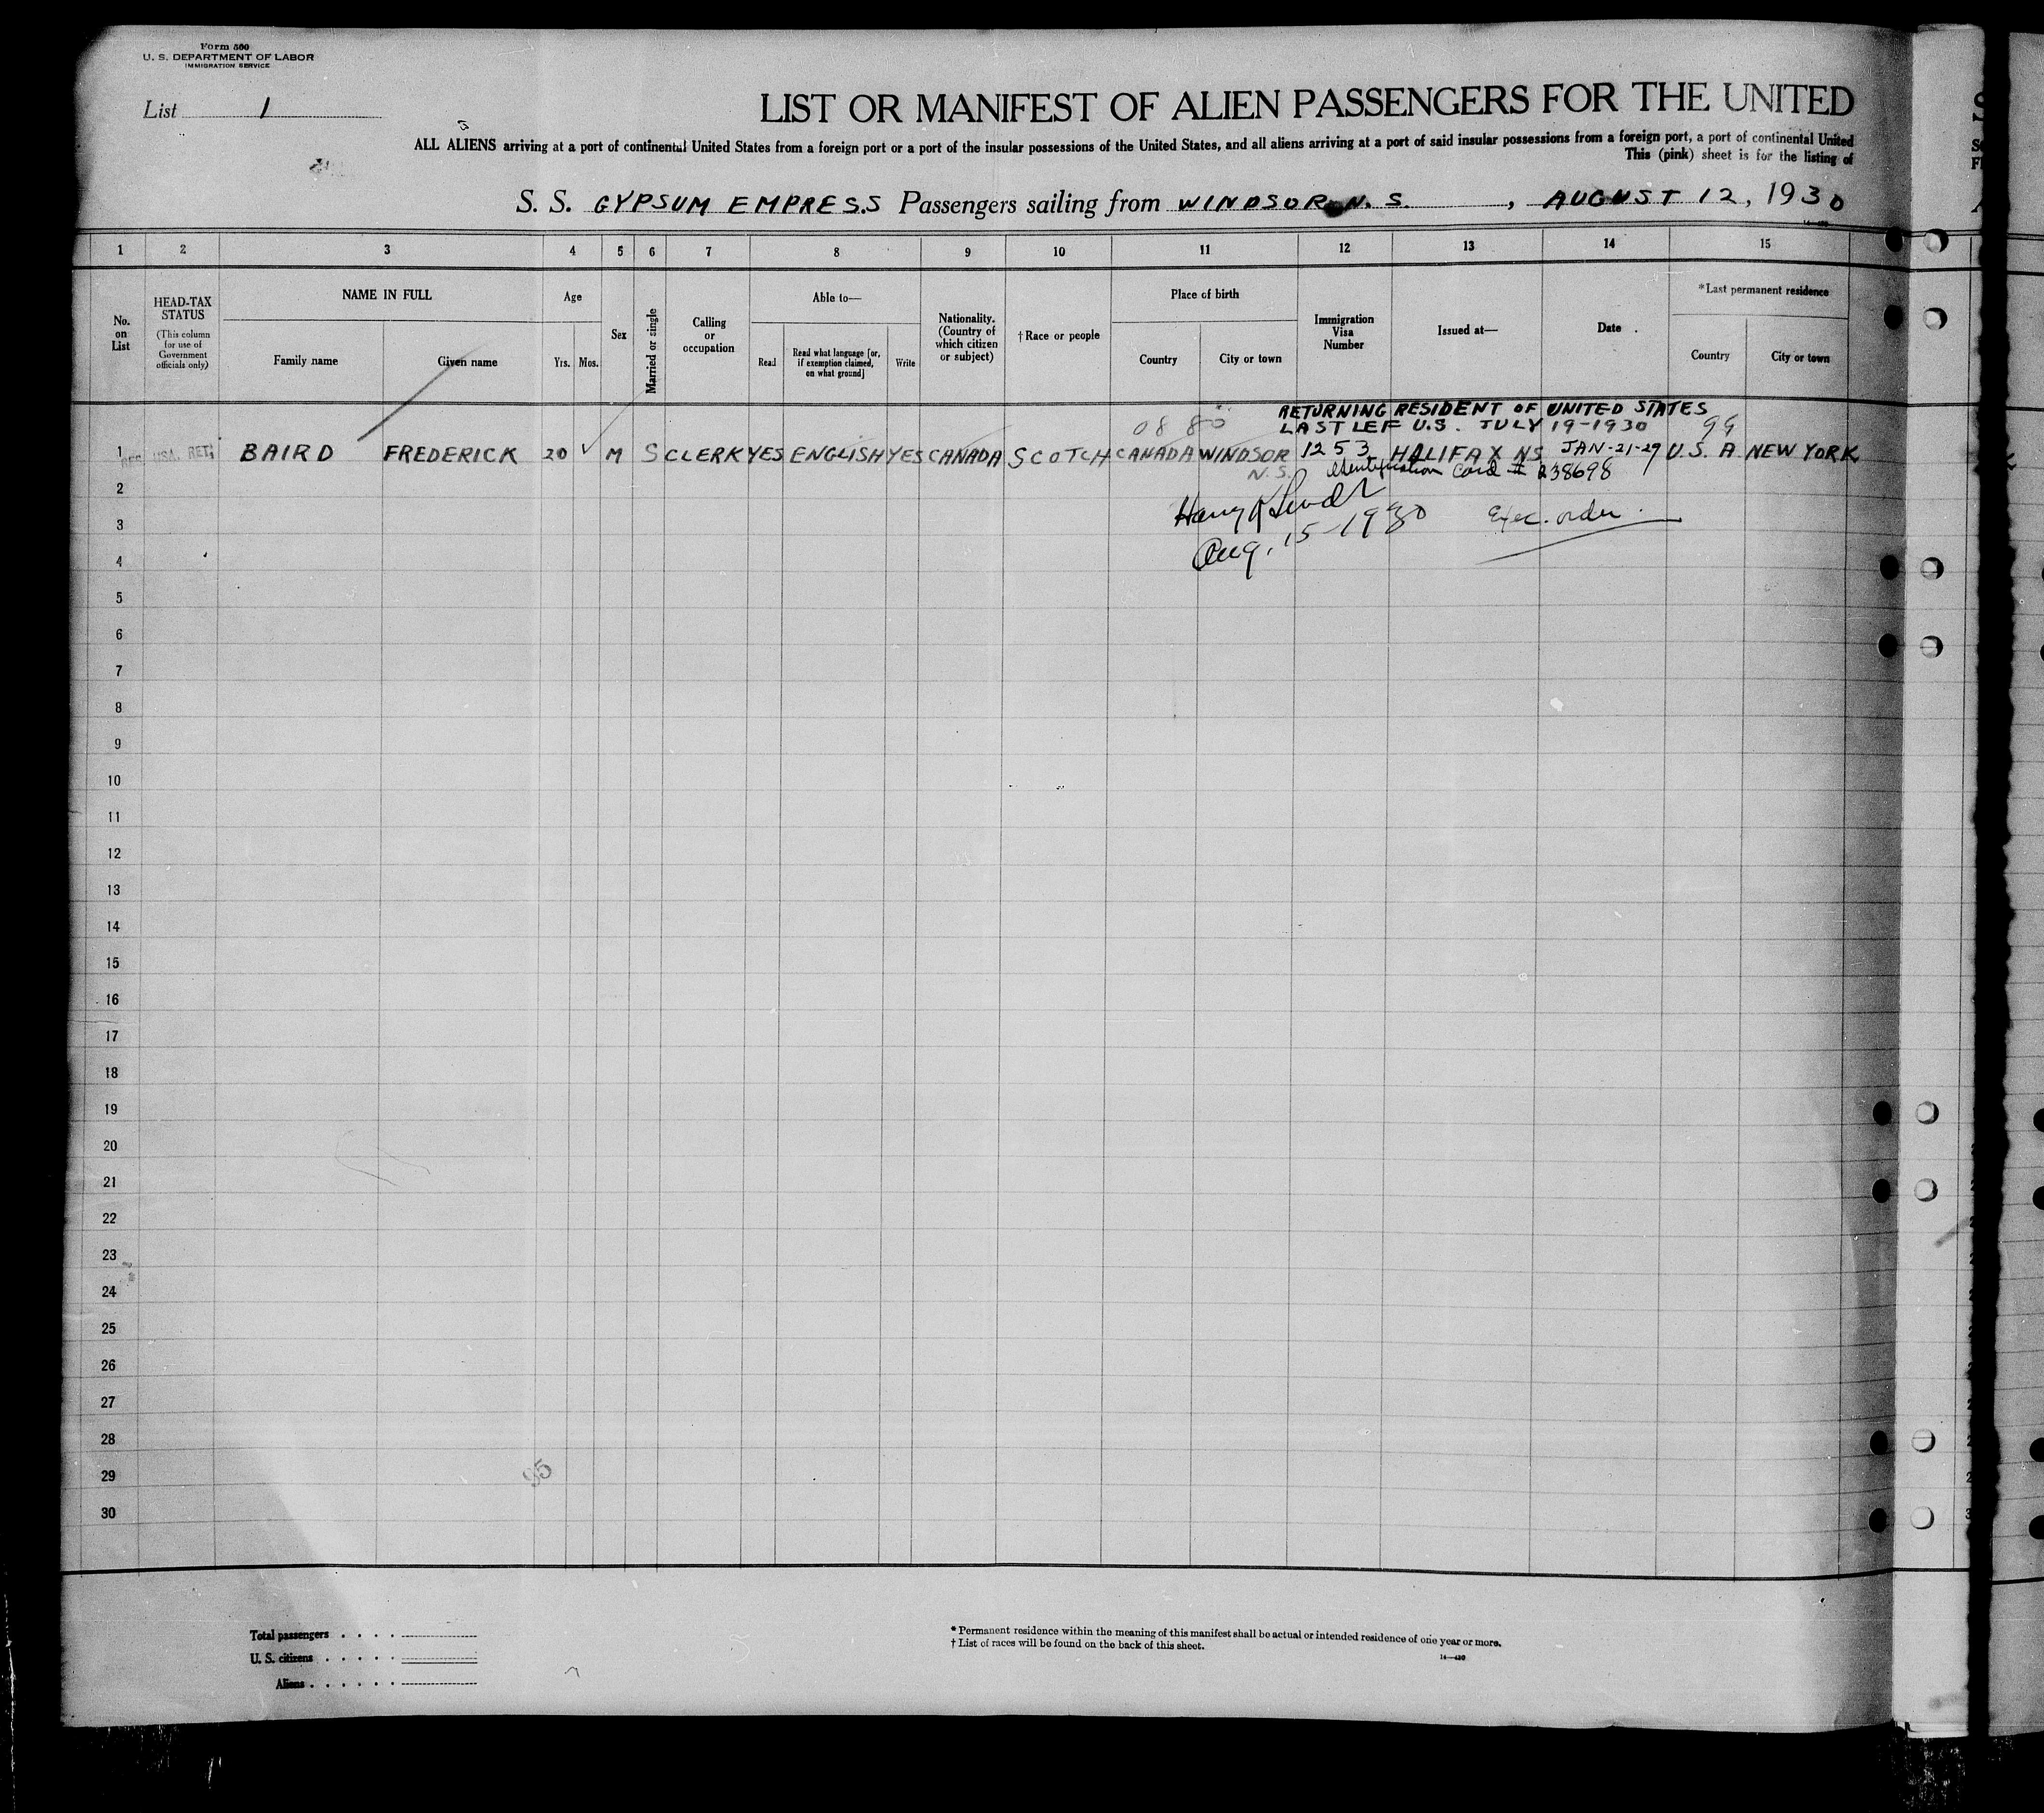 Form 500
U. S. DEPARTMENT OF LABOR
IMMIGRATION SERVICE
List 1
LIST OR MANIFEST OF ALIEN PASSENGERS FOR THE UNITED
ALL ALIENS arriving at a port of continental United States from a foreign port or a port of the insular possessions of the United States, and all aliens arriving at a port of said insular possessions from a foreign port, a port of continental United
This (pink) sheet is for the listing of
S. S. GYPSUM EMPRESS Passengers sailing from WINDSOR N. S. , AUGUST 12, 1930
1 2 3 4 5 6 7 8 9 10 11 12 13 14 15
No. on List
HEAD-TAX STATUS
(This column for use of Government officials only)
NAME IN FULL
Family name Given name
Age
Yrs. Mos.
Sex
Married or single
Calling or occupation
Able to—
Read Read what language [or, if exemption claimed, on what ground] Write
Nationality. (Country of which citizen or subject)
† Race or people
Place of birth
Country City or town
Immigration Visa Number
Issued at—
Date
*Last permanent residence
Country City or town
RETURNING RESIDENT OF UNITED STATES
LAST LEF U.S. JULY 19-1930 99
1 USA. RET. BAIRD FREDERICK 20 M S CLERK YES ENGLISH YES CANADA SCOTCH CANADA WINDSOR 1253 HALIFAX NS JAN-21-29 U.S.A. NEW YORK
N.S. Identification Card # 238698
2
3 Exec. order.
Aug. 15-1930
4
5
6
7
8
9
10
11
12
13
14
15
16
17
18
19
20
21
22
23
24
25
26
27
28
29
95
30
Total passengers
U. S. citizens
Aliens
* Permanent residence within the meaning of this manifest shall be actual or intended residence of one year or more.
† List of races will be found on the back of this sheet.
14—430